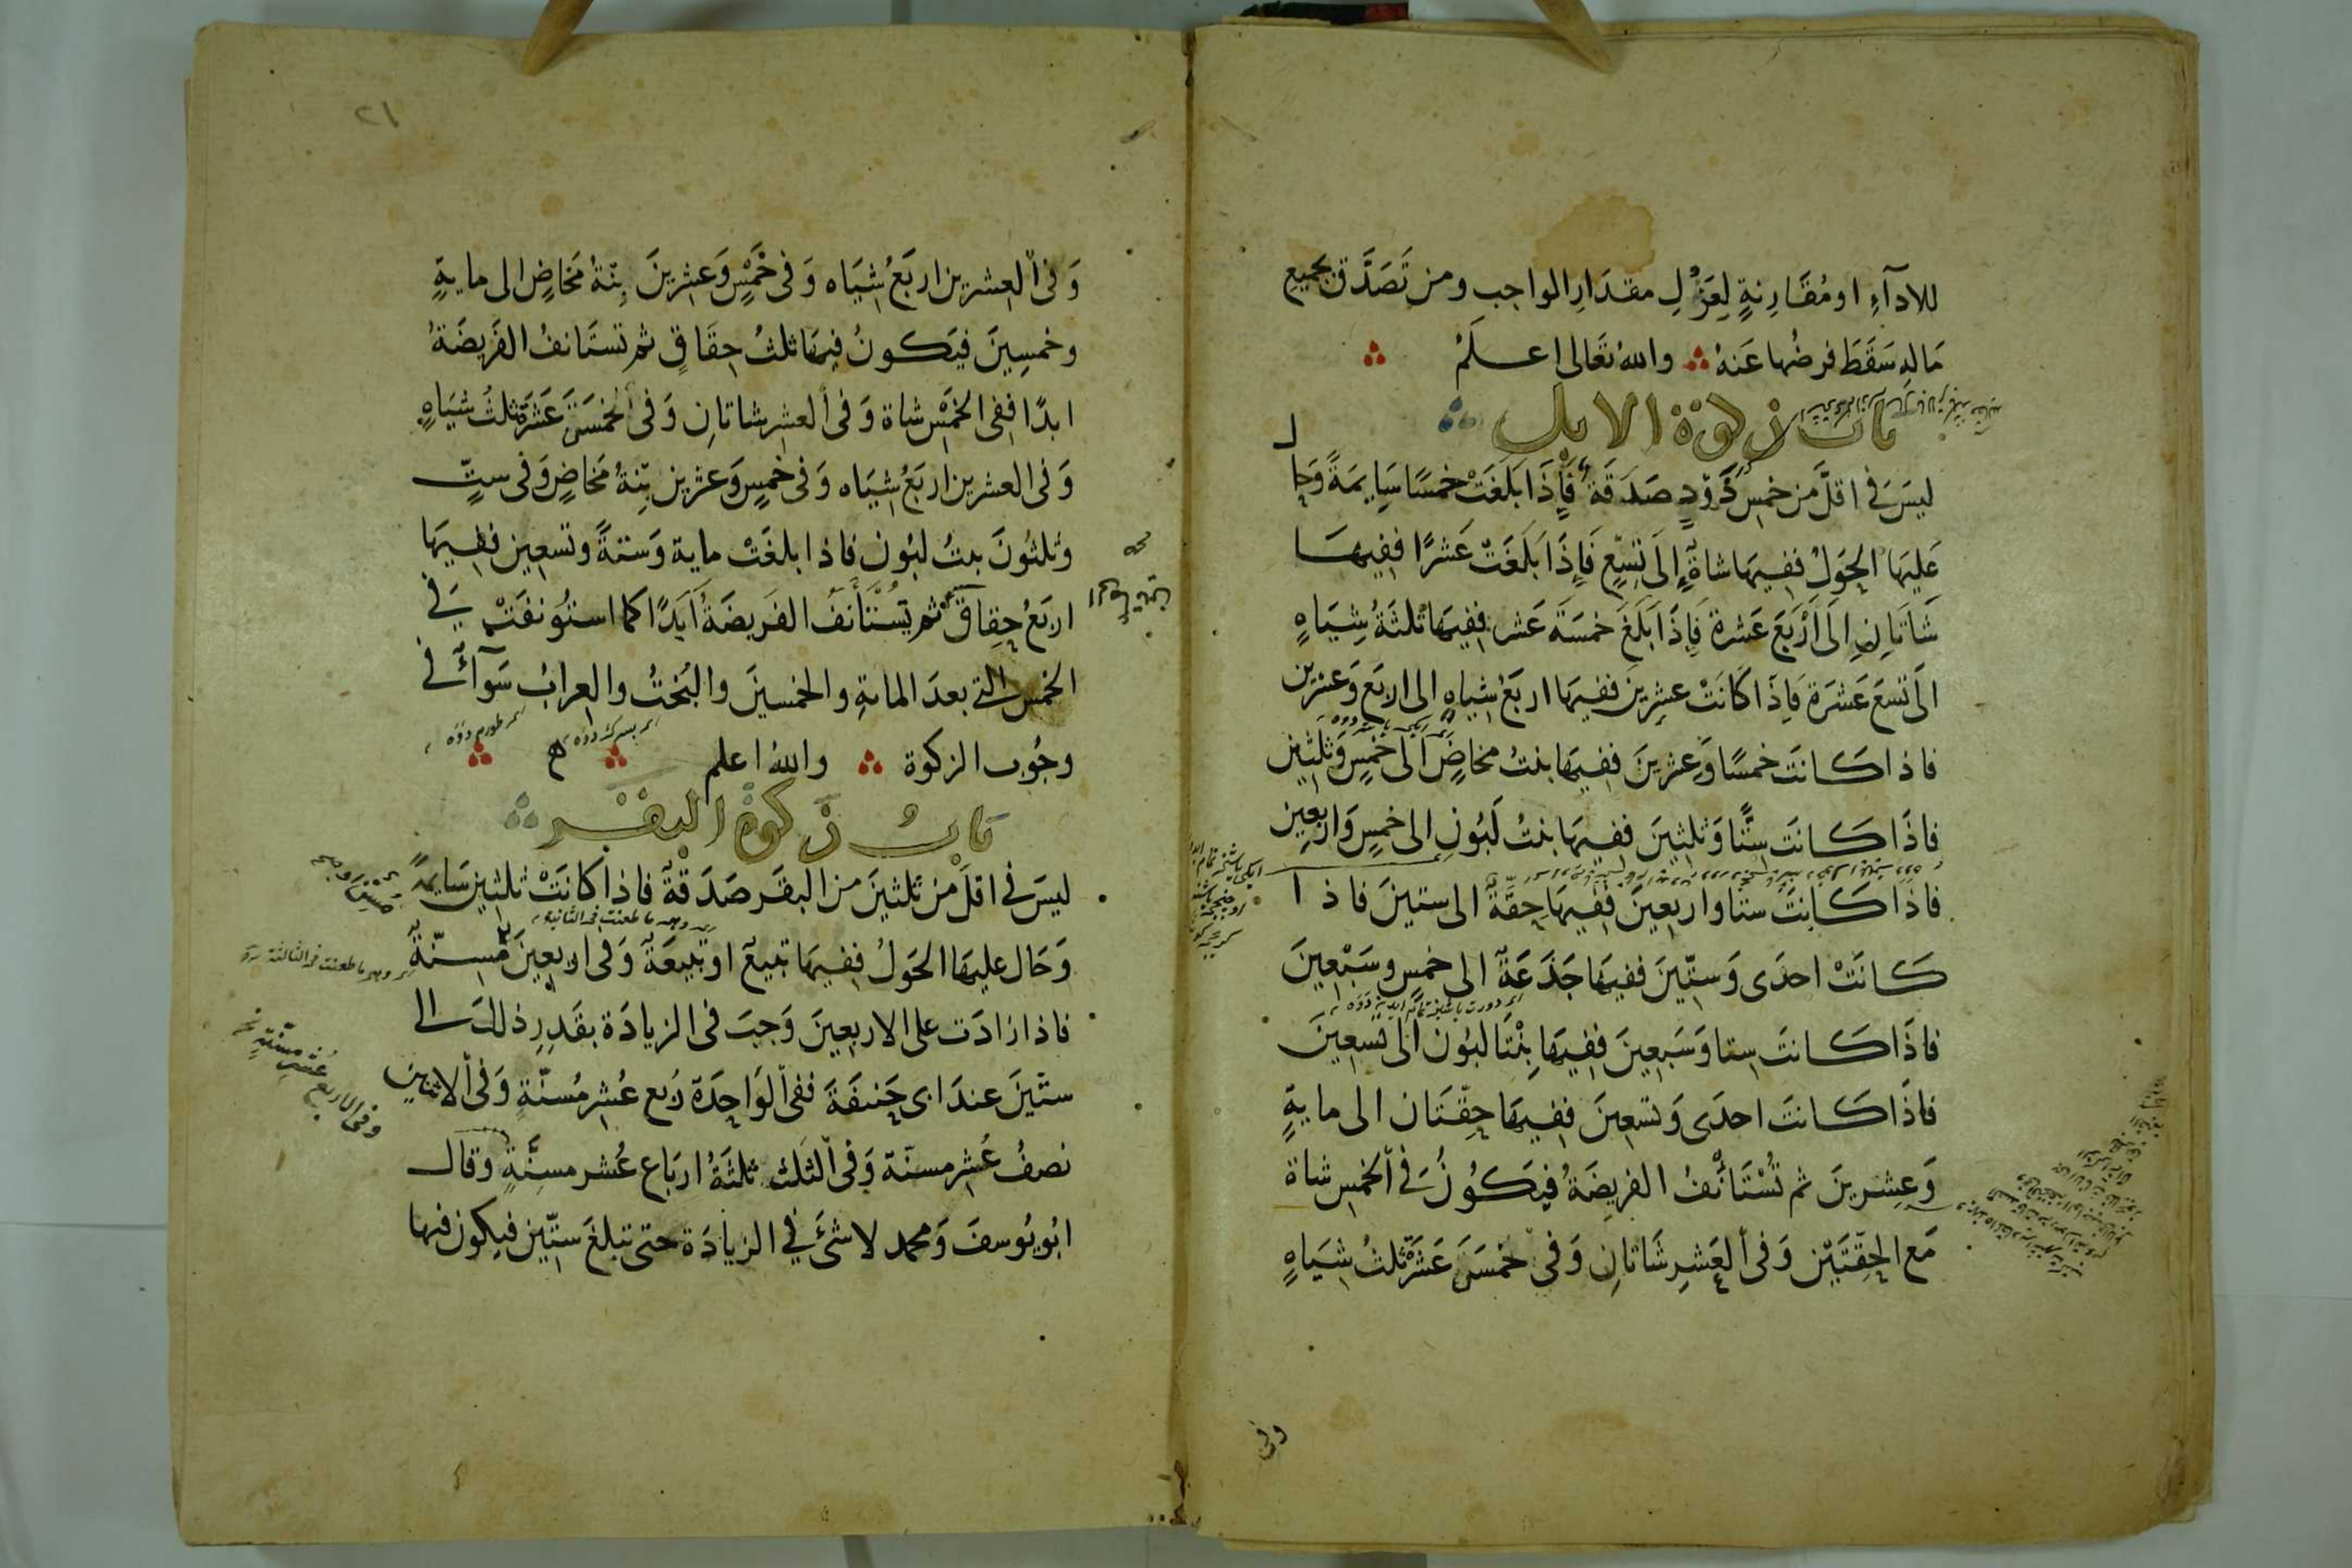 للادآءِ او مُقَارِنةٍ لِعَزْلِ مقدَارِ الواجبِ ومن تَصَدَّق بجميع
مَالهِ سَقَطَ فرضُها عَنهُ والله تعَالى اعلمُ
باب زكوة الابل
ليسَ فى اقلَّ من خمسِ ذَوْدٍ صَدَقَةٌ فَإِذَا بَلَغَتْ خمسًا سَايِمَةً وَحَال
عَلَيهَا الحَولُ ففيهَا شاةٌ إِلَى تِسْعٍ فَإِذَا بَلَغَتْ عَشرًا ففيهَا
شَاتَانِ اِلَى أَرْبَعَ عَشرة فَاِذَا بَلَغَ خمسَةَ عَشر ففيهَا ثلثَةُ شِيَاهٍ
الَى تسعَ عَشرَة فَاِذَا كَانَتْ عشرِينَ ففيهَا اربعُ شياهٍ الى اربَع وَعشرين
فاذا كَانتَ خمسًا وَعِشرينَ ففيهَا بنتُ مخاضٍ الى خمسٍ وَثلثين
فاذَا كَانتَ ستًّا وَثلثينَ ففيهَا بنتُ لَبُونِ الى خمسٍ وَاربعِين
فاذَا كَانتَ ستا واربعينَ ففيهَا حِقَّةٌ الى ستينَ فاذا
كَانتْ احدَى وَستّينَ ففيهَا جَذَعَةٌ الى خمسٍ وسَبْعِينَ
فاذَا كَانتَ ستا وَسَبعِينَ ففيهَا بِنْتَا لبُون الى تسعِينَ
فاذَا كَانتَ احدَى وَتسعِينَ ففيهَا حِقّتَان الى مايةٍ
وَعِشرينَ ثم تُسْتَأنَفُ الفريضَةُ فيَكُونُ فى الخمس شاة
مَع الحِقّتَيْن وَفى العَشرِ شَاتانِ وَفى خمسَةَ عَشَرَةَ ثلثُ شِيَاهٍ
وفى
٢١
وَفى العشرين اربَعُ شيَاه وَفى خَمْسٍ وَعشرينَ بِنْةُ مَخاضٍ الى مايةٍ
وخمسِينَ فيَكونُ فيهَا ثلثُ حِقَاقٍ ثم تستَانفُ الفَريضَةُ
ابدًا ففى الخمْسِ شاة وَفى العشرِ شاتانِ وَفى الخمسَةَ عَشَرَةَ ثلثُ شيَاهٍ
وَفى العشرين اربَعُ شيَاه وَفى خمسٍ وَعشرين بنْةُ مَخاضٍ وَفى ستٍّ
وثلثُونَ بنتُ لبُون فاذا بلغَتْ ماية وَستةً وتسعين ففيهَا
اربَعُ حِقاقٍ ثم تُسْتَأنَفُ الفَريضَةُ اَبَدًا كما استُونفَتْ فى
الخمس التى بعدَ المايةِ والخمسينَ والبُختُ والعرابُ سَوآءٌ فى
وجُوب الزكوة والله اعلم
باب زكوة البقر
ليسَ فى اقلَّ من ثلثينَ من البقَر صَدَقةٌ فاذا كانَتْ ثلثين سَايمةً
وهى ما طعنت فى الثانية
وَحَال عليهَا الحَولُ ففيهَا تَبيعٌ او تَبيعَةٌ وَفى اربعِينَ مُسِنّةٌ
وهى ما طعنت فى الثالثة
فاذا زادَت على الاربعِينَ وَجبَ فى الزيادَة بقَدرِ ذلكَ الى
ستّينَ عندَ ابى حَنيفَةَ ففى الوَاحِدَة رُبع عُشرِ مُسنّةٍ وَفى الاثنين
نصفُ عُشرِ مسنّة وَفى الثلث ثلثَةُ اربَاع عُشر مسِنَّةٍ وقال
وفى الاربع عُشر مسنّةٍ
ابُو يُوسفَ وَمحمد لا شئَ فى الزيادَة حتى تبلغَ ستّين فيكون فيها